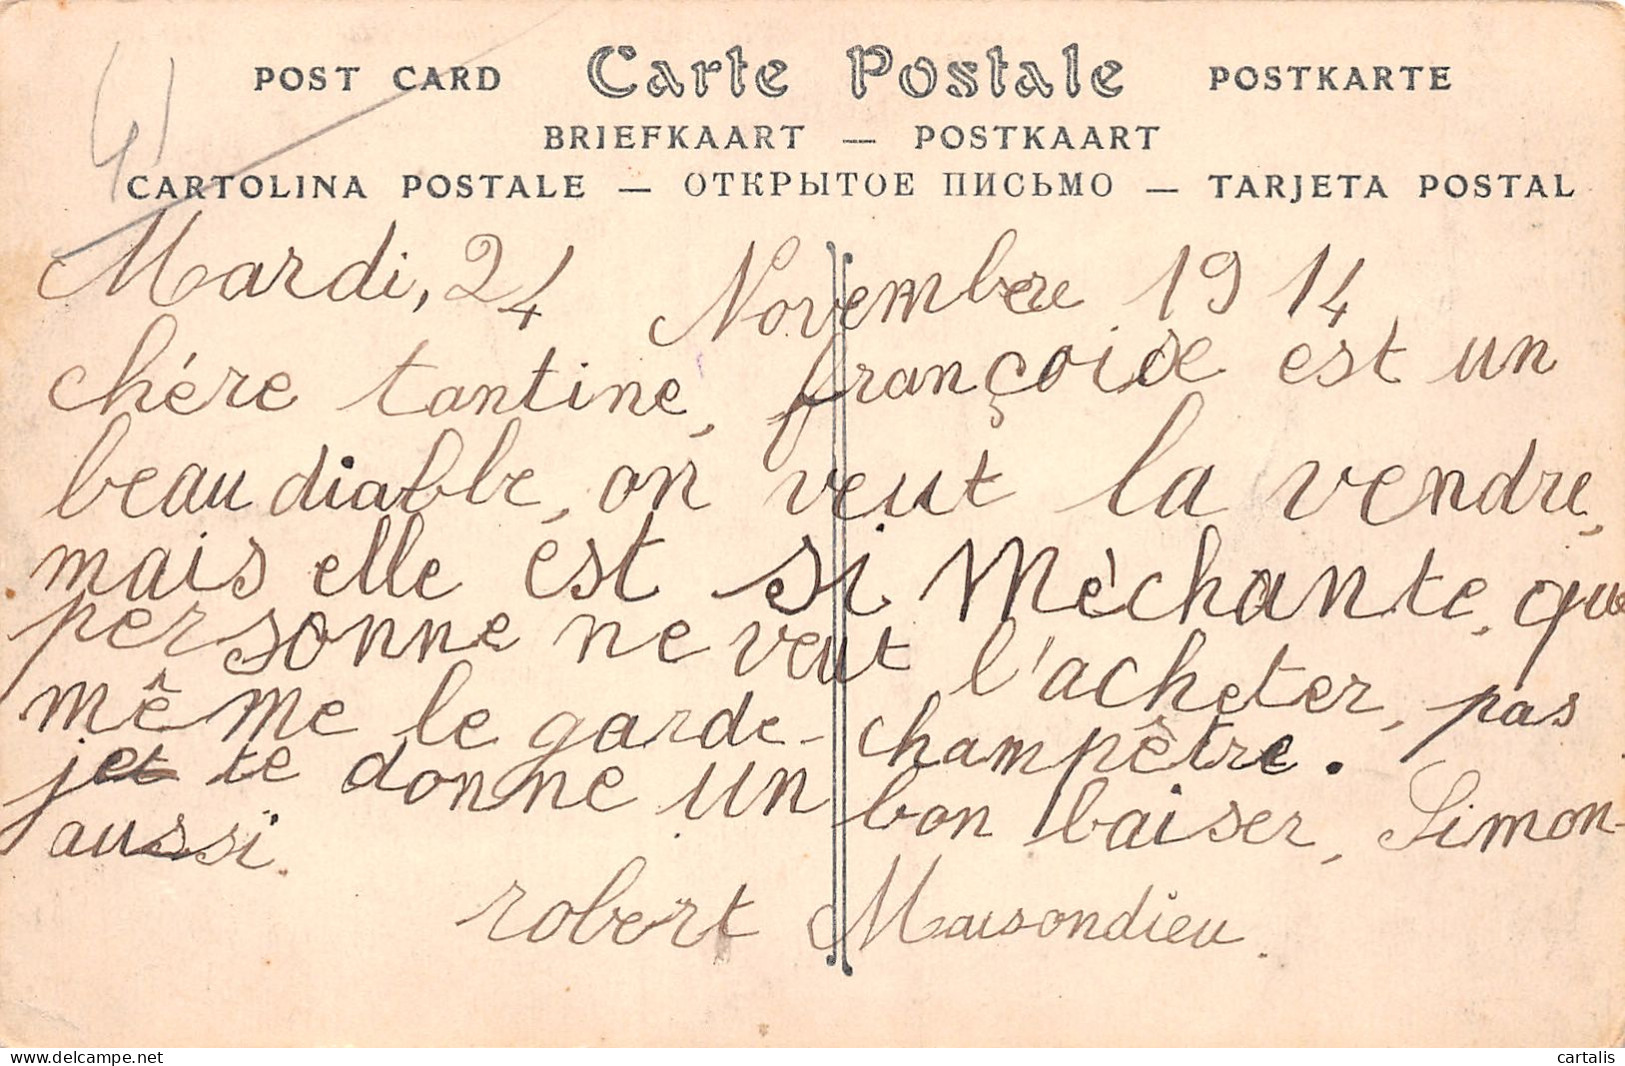 4
POST CARD Carte Postale POSTKARTE
BRIEFKAART — POSTKAART
CARTOLINA POSTALE — ОТКРЫТОЕ ПИСЬМО — TARJETA POSTAL
Mardi, 24 Novembre 1914
chére tantine, françoise est un
beau diable, on veut la vendre,
mais elle est si Mèchante, que
personne ne veut l'acheter, pas
même le garde-champêtre.
je te donne un bon baiser, Simon-
aussi.
robert Maisondieu.
cartalis